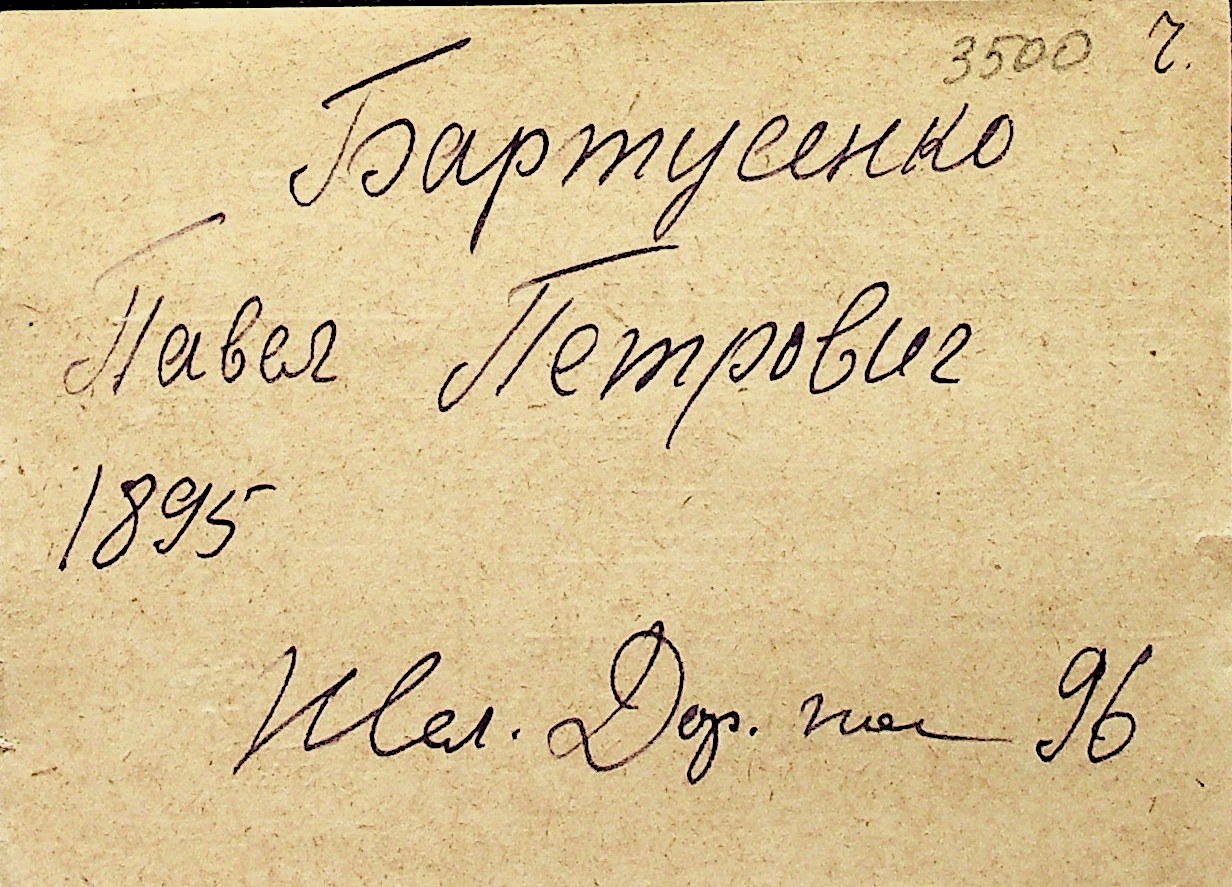 3500 г.
Бартусенко
Павел Петрович
1895
Дор. 96